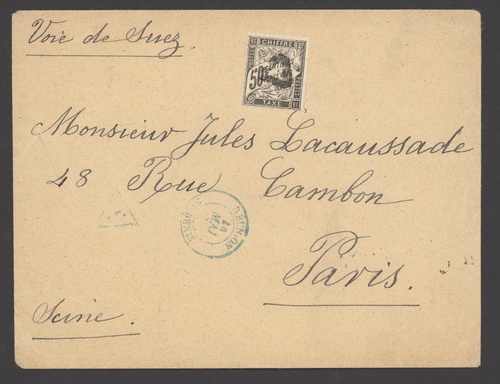 Voie de Suez
CHIFFRE
50
TAXE
Monsieur Jules Lacaussade
48 Rue Cambon
REUNION
MAI
Paris.
Seine.